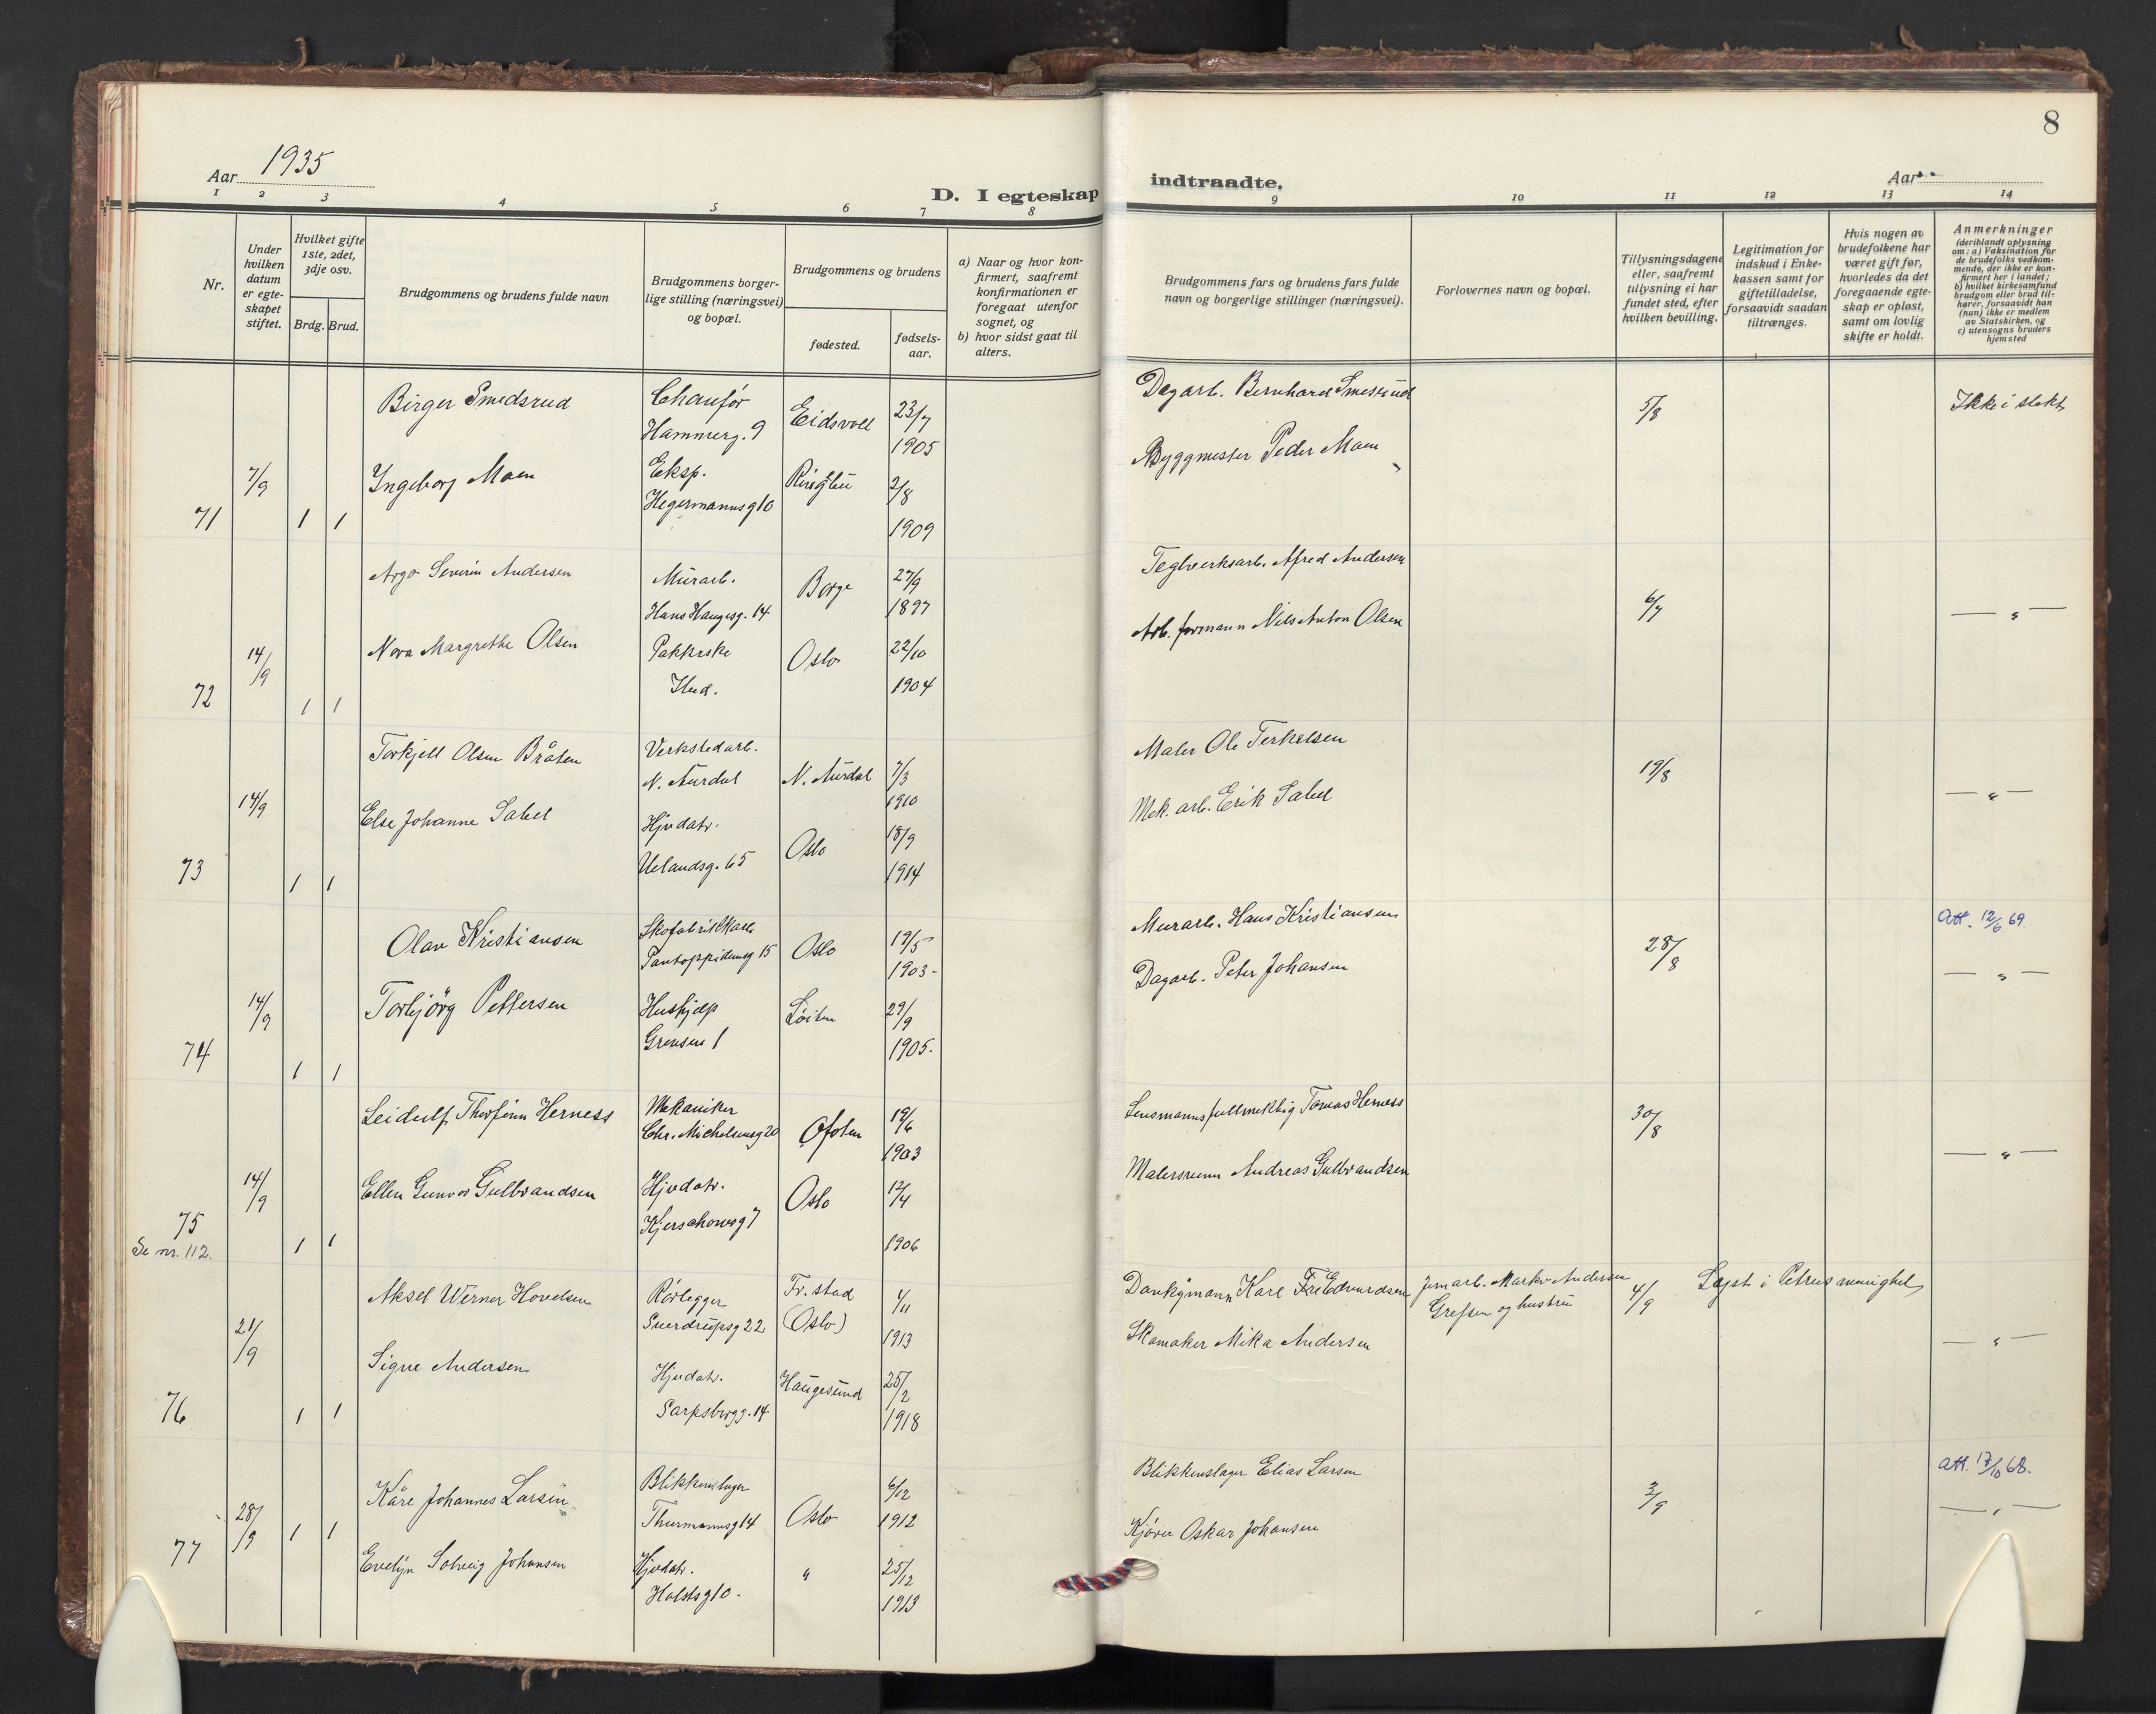 8
Aar 1935
D. I egteskap indtraadte.
Aar
1 2 3 4 5 6 7 8 9 10 11 12 13 14
Nr.
Under
hvilken
datum
er egte-
skapet
stiftet.
Hvilket gifte
1ste, 2det,
3dje osv.
Brdg. Brud.
Brudgommens og brudens fulde navn
Brudgommens borger-
lige stilling (næringsvei)
og bopæl.
Brudgommens og brudens
fødested.
fødsels-
aar.
a) Naar og hvor kon-
firmert, saafremt
konfirmationen er
foregaat utenfor
sognet, og
b) hvor sidst gaat til
alters.
Brudgommens fars og brudens fars fulde
navn og borgerlige stillinger (næringsvei).
Forlovernes navn og bopæl.
Tillysningsdagene
eller, saafremt
tillysning ei har
fundet sted, efter
hvilken bevilling.
Legitimation for
indskud i Enke-
kassen samt for
giftetilladelse,
forsaavidt saadan
tiltrænges.
Hvis nogen av
brudefolkene har
været gift før,
hvorledes da det
foregaaende egte-
skap er opløst,
samt om lovlig
skifte er holdt.
Anmerkninger
(deriblandt oplysning
om: a) Vaksination for
de brudefolks vedkom-
mende, der ikke er kon-
firmert her i landet;
b) hvilket kirkesamfund
brudgom eller brud til-
hører, forsaavidt han
(hun) ikke er medlem
av Statskirken, og
c) utensogns bruders
hjemsted
Birger Smedsrud
Chaufør
Hammerg. 9
Eidsvoll
23/7
1905
Dagarb. Bernhard Smesrud
5/8
Ikke i slekt
7/9
Ingeborg Moen
Eksp.
Hegermannsg 10
Ringebu
2/8
1909
Byggmester Peder Moen
71 1 1
Argo Severin Andersen
Murarb.
Hans Haugesg. 14
Borge
27/9
1897
Teglverksarb. Alfred Andersen
6/7
— „ —
14/9
Nora Margrethe Olsen
Pakkerske
Oslo
22/10
1904
Arb. formann Nils Anton Olsen
72 1 1
Torkjell Olsen Bråten
Verkstedarb.
N. Aurdal
N. Aurdal
7/3
1910
Maler Ole Terkelsen
19/8
— „ —
14/9
Else Johanne Sabel
Hjvdatr.
Uelandsg. 65
Oslo
18/9
1914
Mek. arb. Erik Sabel
73 1 1
Olav Kristiansen
Skofabrikkarb
Pantoppidansg 15
Oslo
19/5
1903-
Murarb. Hans Kristiansen
28/8
Att. 12/6 69.
— „ —
14/9
Torbjörg Pettersen
Hushjelp
Grensen 1
Löiten
29/9
1905.
Dagarb. Peter Johansen
74 1 1
Leidulf Thorfinn Herness
Mekaniker
Chr. Michelsensg 20
Ofoten
19/6
1903
Lensmannsfullmektig Tomas Herness
30/8
— „ —
14/9
Ellen Gunvor Gulbrandsen
Hjvdatr.
Kjerschowsg 7
Oslo
12/4
1906
Malersvenn Andreas Gulbrandsen
75 1 1
Se nr. 112.
Aksel Werner Hovelsen
Rørlegger
Sverdrupsg 22
Fr. stad
(Oslo)
4/11
1913
Karl Edvardsen
Jernarb. Andersen
Grefsen og hustru
4/9
Løst i Petrus menighet
— „ —
21/9
Signe Andersen
Hjvdatr.
Sarpsborgg. 14
Haugesund
25/2
1918
Skomaker Mika Andersen
76 1 1
Kåre Johannes Larsen
Blikkenslager
Thurmannsg 14
Oslo
6/12
1912
Blikkenslager Elias Larsen
3/9
Att. 17/10 68.
— „ —
28/9 1 1
77
Evelyn Solveig Johansen
Hjvdatr.
Holstsg 10.
„
25/12
1913
Kjører Oskar Johansen